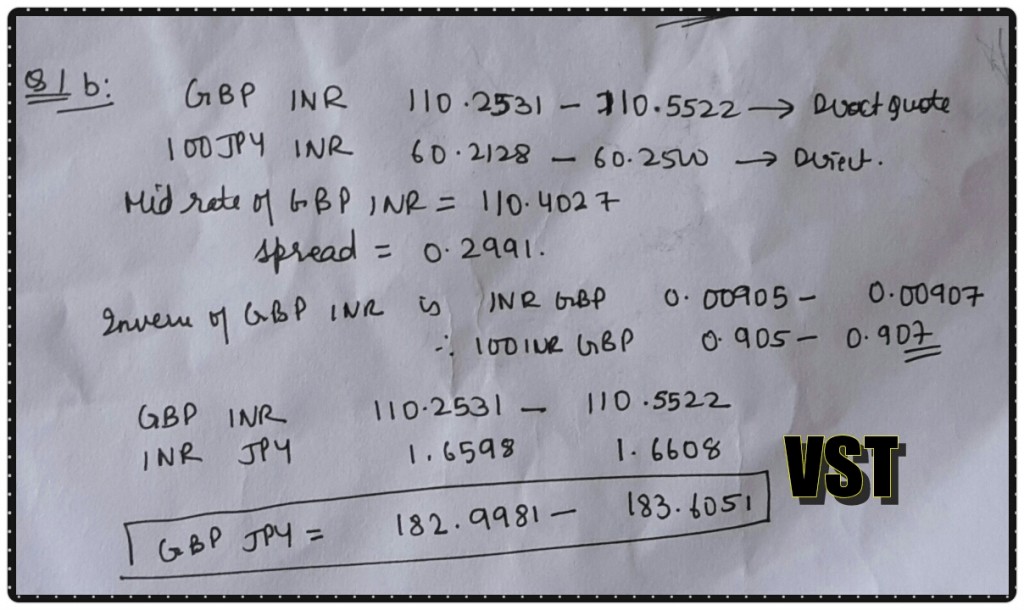 Q1 b: GBP INR 110.2531 – 110.5522 → Direct quote
100 JPY INR 60.2128 – 60.2510 → Direct.
Mid rate of GBP INR = 110.4027
spread = 0.2991.
Inverse of GBP INR is INR GBP 0.00905 – 0.00907
∴ 100 INR GBP 0.905 – 0.907
GBP INR 110.2531 – 110.5522
INR JPY 1.6598 1.6608
VST
GBP JPY = 182.9981 – 183.6051